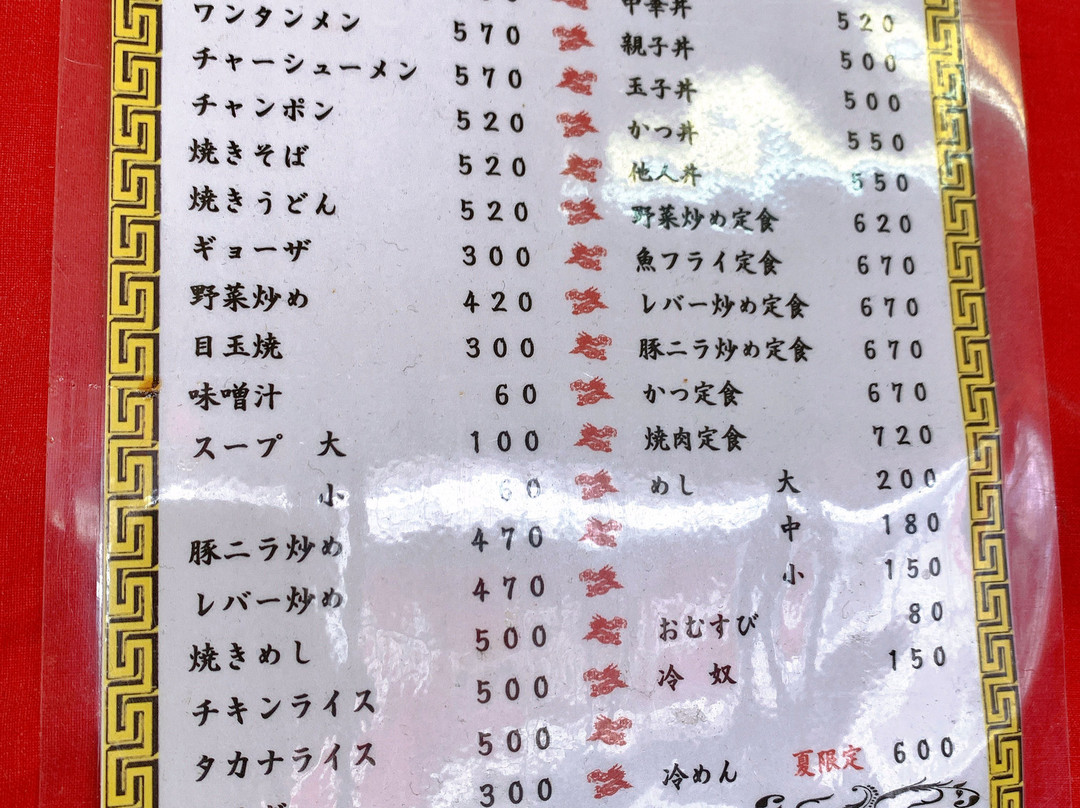 ワンタンメン 570
チャーシューメン 570
チャンポン 520
焼きそば 520
焼きうどん 520
ギョーザ 300
野菜炒め 420
目玉焼 300
味噌汁 60
スープ 大 100
小 60
豚ニラ炒め 470
レバー炒め 470
焼きめし 500
チキンライス 500
タカナライス 500
300
中華丼 520
親子丼 500
玉子丼 500
かつ丼 550
他人丼 550
野菜炒め定食 620
魚フライ定食 670
レバー炒め定食 670
豚ニラ炒め定食 670
かつ定食 670
焼肉定食 720
めし 大 200
中 180
小 150
おむすび 80
冷 奴 150
冷めん 夏限定 600